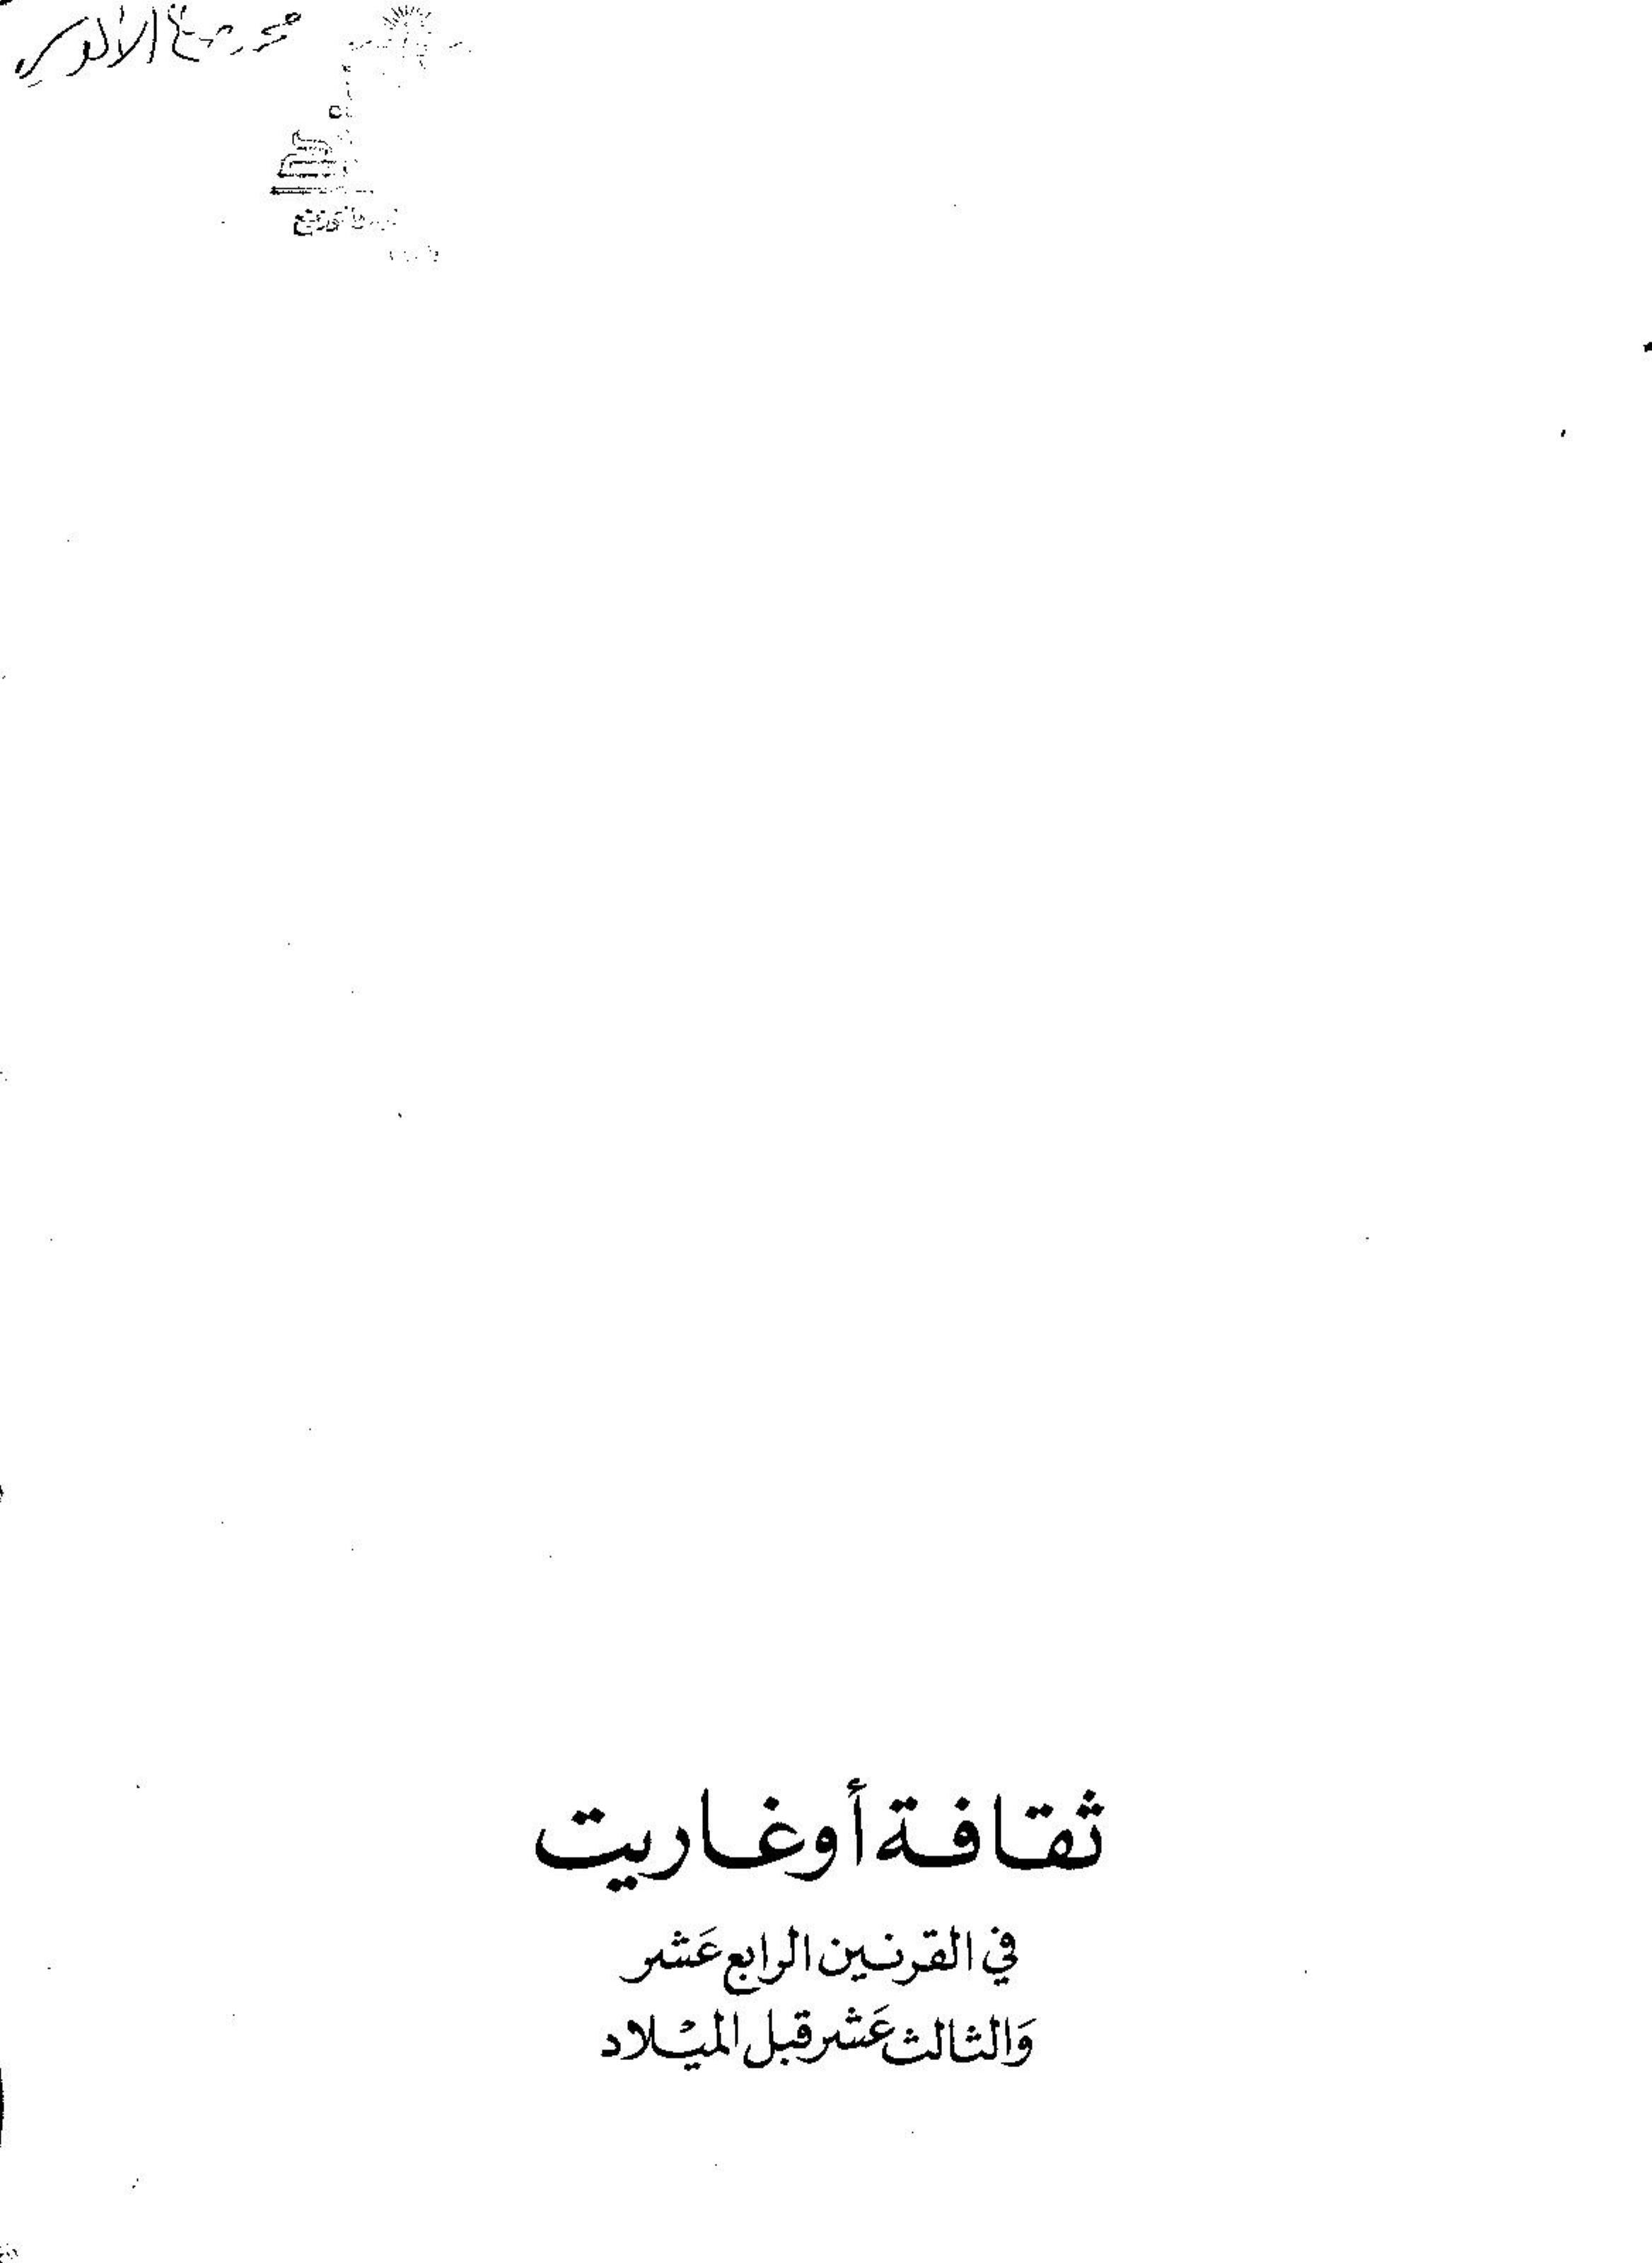 ثقافة أوغاريت
في القرنين الرابع عَشر
وَالثالث عَشر قبل الميْلاد